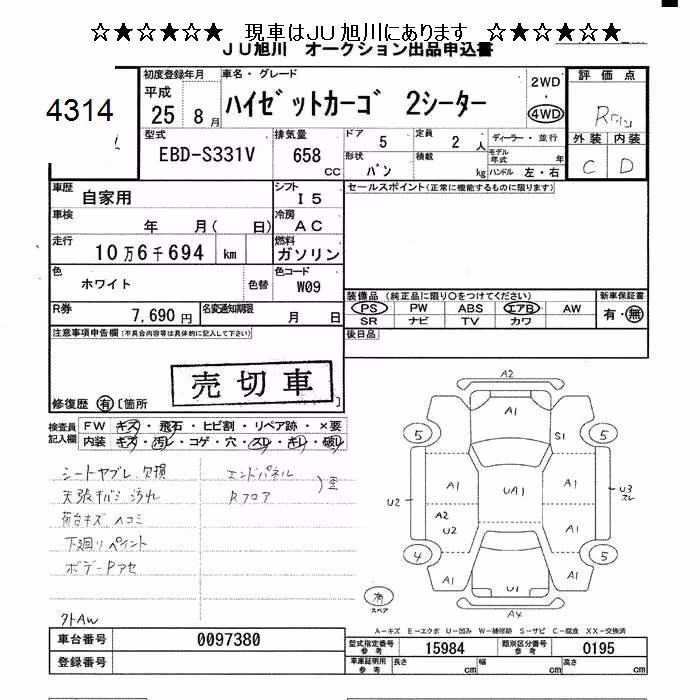 ☆★☆★☆★☆ 現車はＪＵ旭川にあります ☆★☆★☆★☆
ＪＵ旭川 オークション出品申込書
4314
初度登録年月
平成
25 8 月
車名・グレード
ハイゼットカーゴ 2シーター
2WD
・
4WD
評価点
R
外装 内装
C D
型式
EBD-S331V
排気量
658
CC
ドア 5
定員 2 人
ディーラー・並行
形状 バン
積載 kg
モデル年式 年
ハンドル 左・右
車歴
自家用
シフト
I 5
セールスポイント(正常に機能するものに限ります)
車検
年 月( 日)
冷房
AC
走行
10万6千694 km
燃料
ガソリン
色
ホワイト
色替
色コード
W09
装備品 (純正品に限り○をつけてください)
新車保証書
PS PW ABS エアB AW
SR ナビ TV カワ
有・無
R券
7,690 円
名変通知期限
月 日
後日品
注意事項申告欄(不具合内容等は具体的に記入して下さい)
売切車
修復歴 有 〔箇所
検査員記入欄
FW キズ・飛石・ヒビ割・リペア跡・×要
内装 キズ・汚レ・コゲ・穴・スレ・キレ・破レ
シートヤブレ、欠損
天張キバミ、汚れ
荷台キズ、ヘコミ
下廻りペイント
ボデーPアセ
外AW
エンドパネル
Rフロア
)歪
A2
A1
5
S1
5
A1
A1
UA1
U2
U3
スレ
A2
U2
A1
4
5
A1
A1
U1
A4
有
スペア
A－キズ E－エクボ U－凹み W－補修跡 S－サビ C－腐食 XX－交換済
車台番号
0097380
登録番号
型式指定番号
参考
15984
類別区分番号
参考
0195
車庫証明用
参考
長さ cm
幅 cm
高さ cm